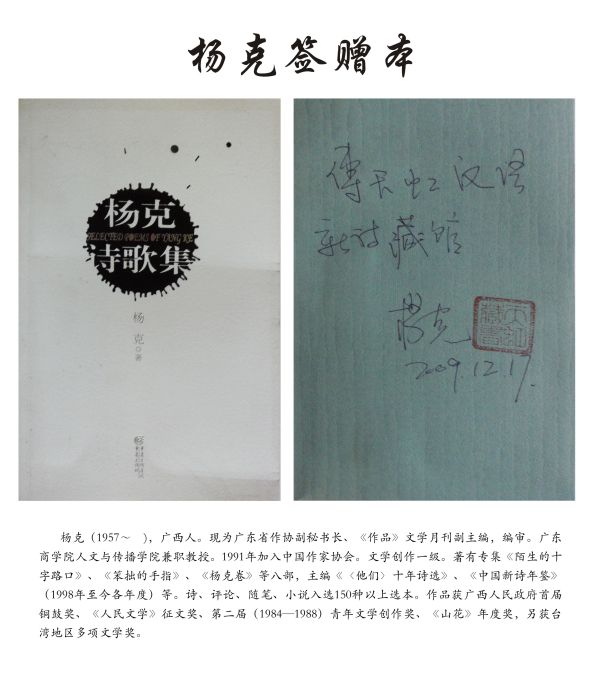 杨克签赠本
杨克
SELECTED POEMS OF YANG KE
诗歌集
杨
克
◎
著
傅天虹汉语
新诗藏馆
杨克
2009.12.17.
杨克（1957～　），广西人。现为广东省作协副秘书长、《作品》文学月刊副主编，编审。广东
商学院人文与传播学院兼职教授。1991年加入中国作家协会。文学创作一级。著有专集《陌生的十
字路口》、《笨拙的手指》、《杨克卷》等八部，主编《〈他们〉十年诗选》、《中国新诗年鉴》
（1998年至今各年度）等。诗、评论、随笔、小说入选150种以上选本。作品获广西人民政府首届
铜鼓奖、《人民文学》征文奖、第二届（1984—1988）青年文学创作奖、《山花》年度奖，另获台
湾地区多项文学奖。